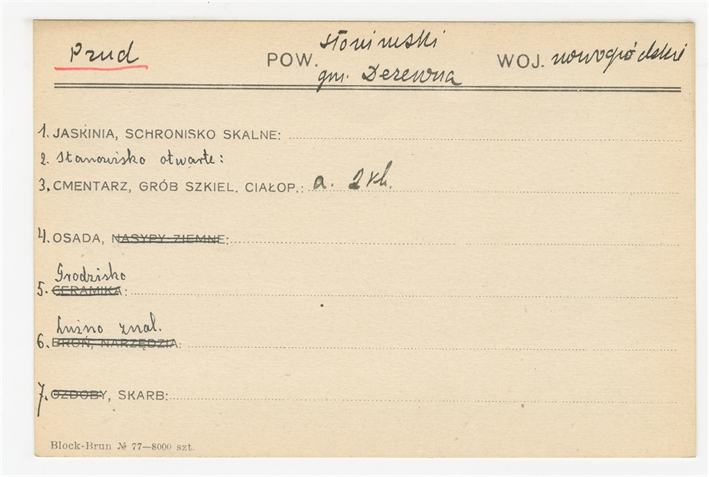 Prud POW. słonimski WOJ. nowogródzki
gm. Derewna
1. JASKINIA, SCHRONISKO SKALNE:
2. Stanowisko otwarte:
3. CMENTARZ, GRÓB SZKIEL. CIAŁOP.: a. 2 kh.
4. OSADA, NASYPY ZIEMNE:
Grodzisko
5. CERAMIKA:
Luźno znal.
6. BROŃ, NARZĘDZIA:
7. OZDOBY, SKARB:
Block-Brun № 77—8000 szt.